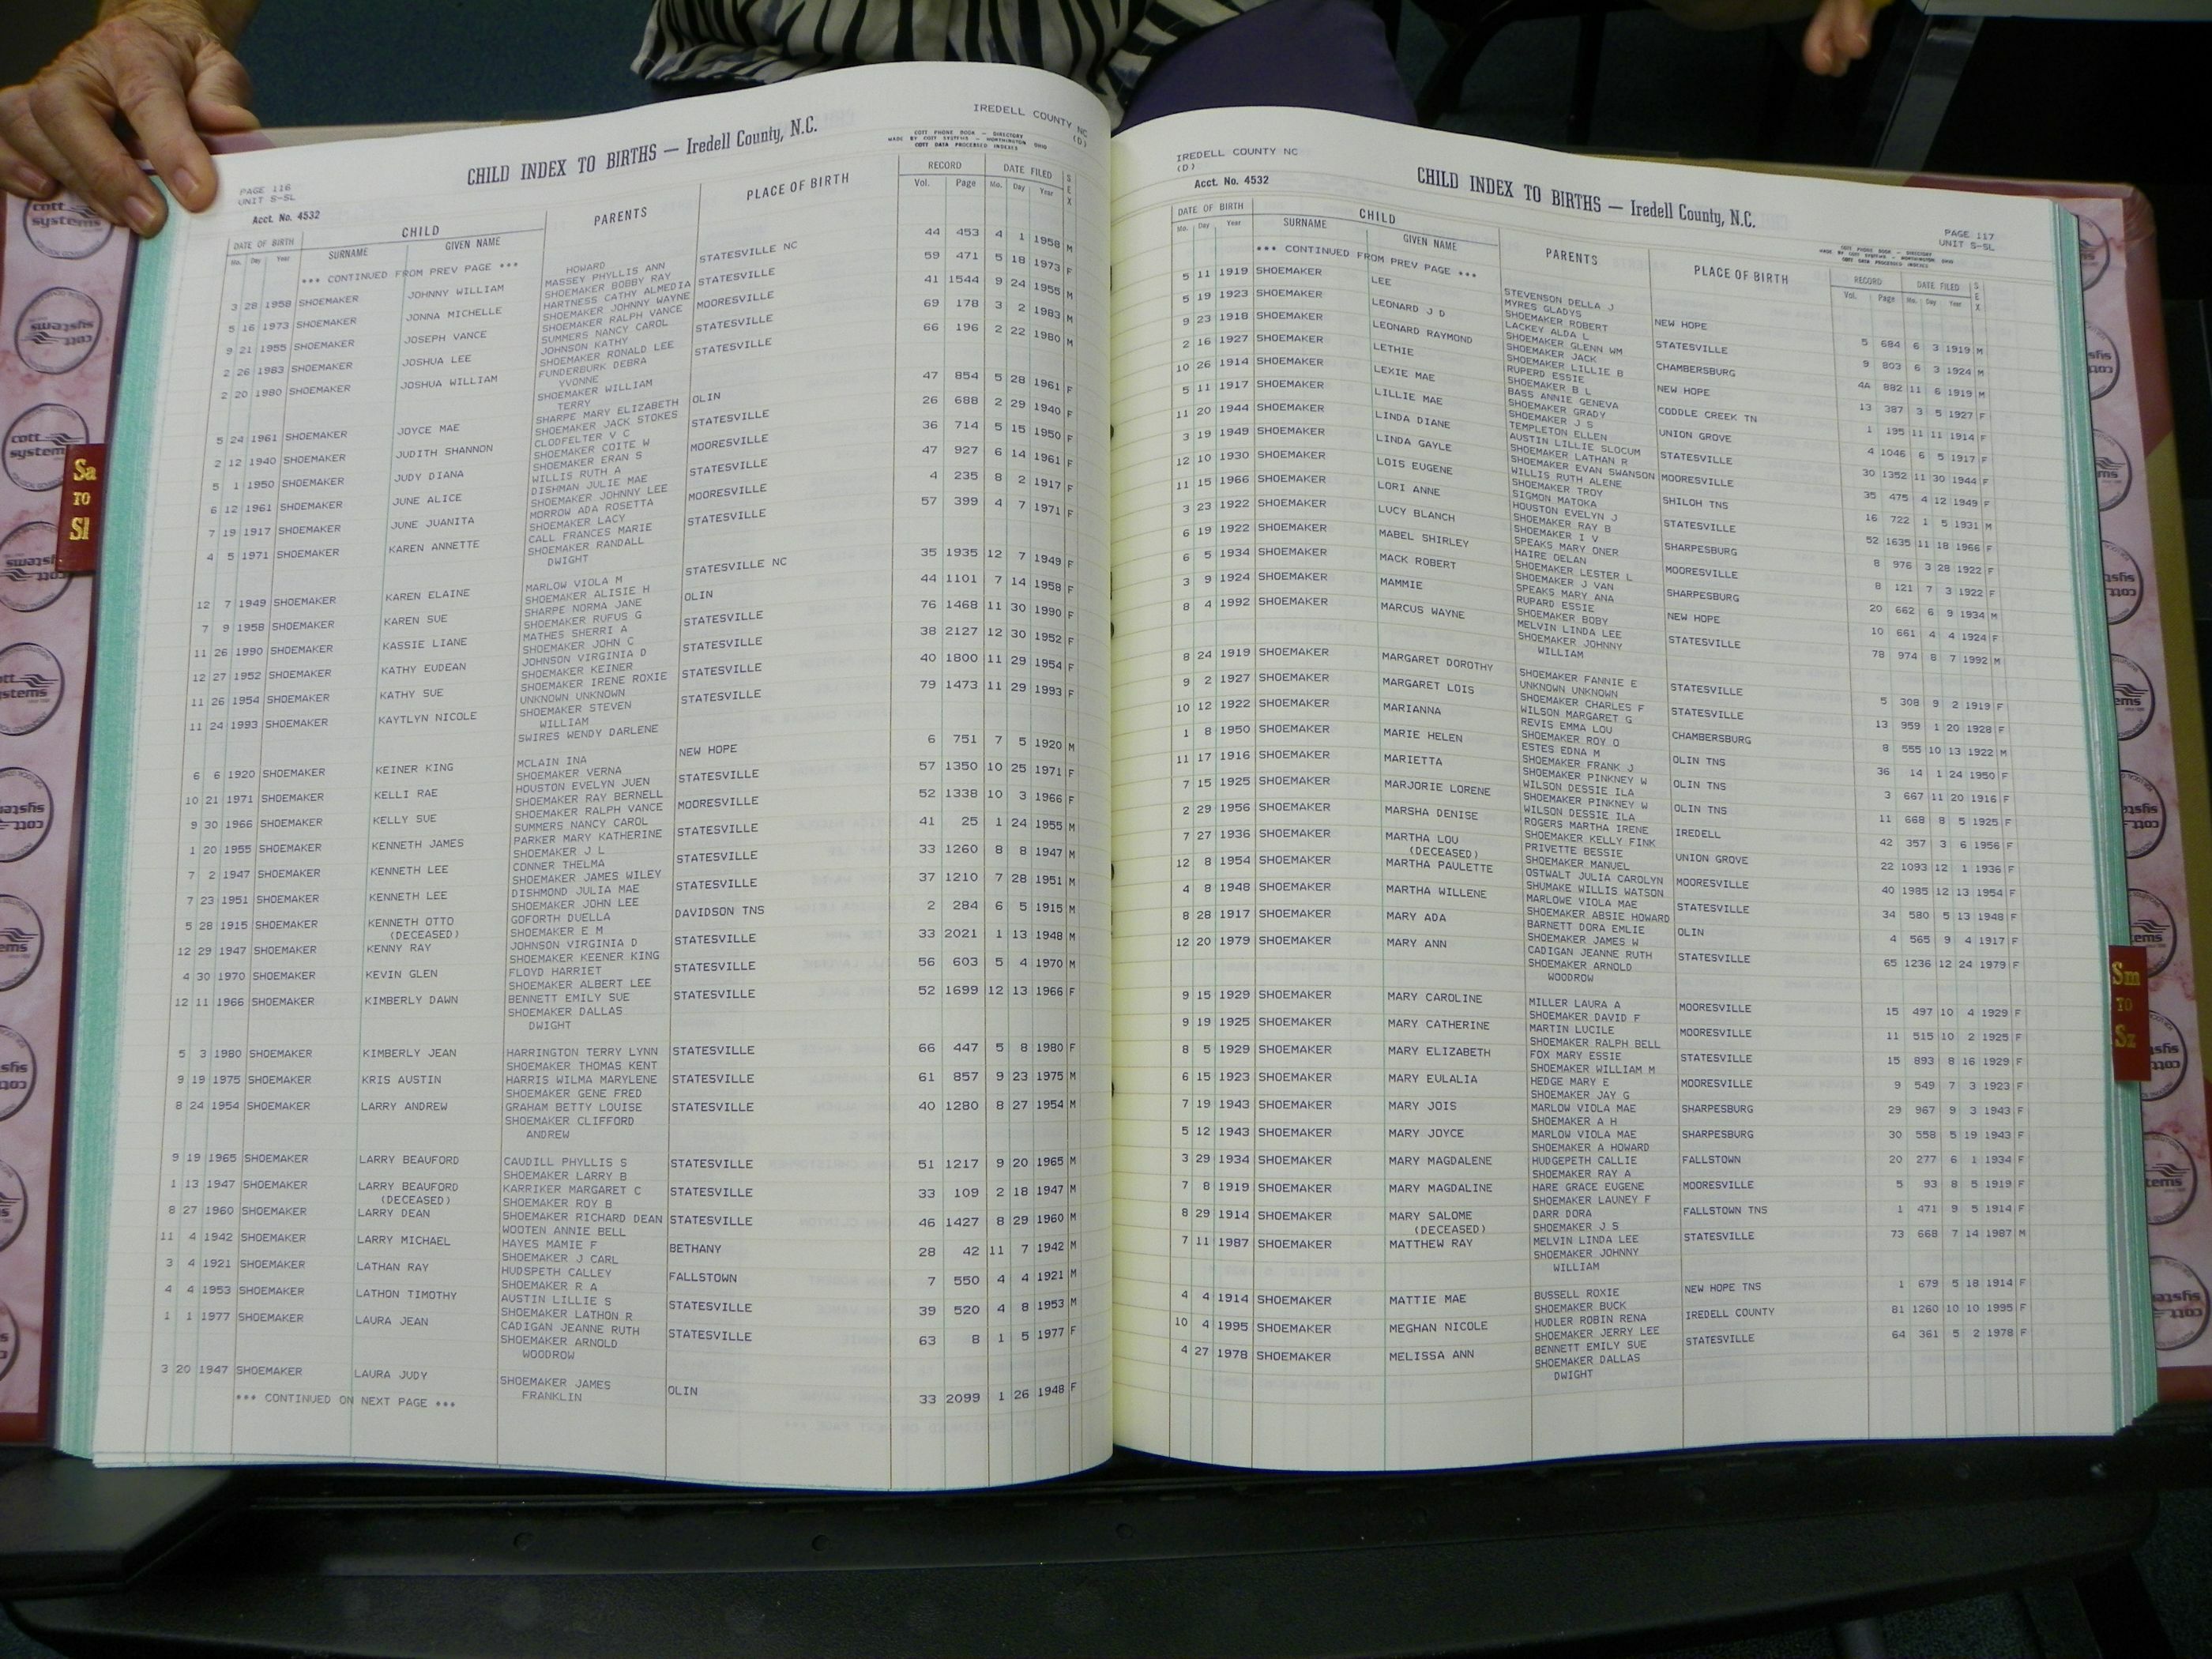 IREDELL COUNTY NC
(D)
CHILD INDEX TO BIRTHS — Iredell County, N.C.
COTT PHONE BOOK - DIRECTORY
MADE BY COTT SYSTEMS - WORTHINGTON OHIO
COTT DATA PROCESSED INDEXES
PAGE 116
UNIT S-SL
Acct. No. 4532
DATE OF BIRTH CHILD PARENTS PLACE OF BIRTH RECORD DATE FILED SEX
Mo. Day Year SURNAME GIVEN NAME Vol. Page Mo. Day Year
*** CONTINUED FROM PREV PAGE ***
HOWARD
3 28 1958 SHOEMAKER JOHNNY WILLIAM MASSEY PHYLLIS ANN STATESVILLE NC 44 453 4 1 1958 M
SHOEMAKER BOBBY RAY
5 16 1973 SHOEMAKER JONNA MICHELLE HARTNESS CATHY ALMEDIA STATESVILLE 59 471 5 18 1973 F
SHOEMAKER JOHNNY WAYNE
9 21 1955 SHOEMAKER JOSEPH VANCE SHOEMAKER RALPH VANCE MOORESVILLE 41 1544 9 24 1955 M
SUMMERS NANCY CAROL
2 26 1983 SHOEMAKER JOSHUA LEE JOHNSON KATHY STATESVILLE 69 178 3 2 1983 M
SHOEMAKER RONALD LEE
2 20 1980 SHOEMAKER JOSHUA WILLIAM FUNDERBURK DEBRA STATESVILLE 66 196 2 22 1980 M
YVONNE
SHOEMAKER WILLIAM
TERRY
5 24 1961 SHOEMAKER JOYCE MAE SHARPE MARY ELIZABETH OLIN 47 854 5 28 1961 F
SHOEMAKER JACK STOKES
2 12 1940 SHOEMAKER JUDITH SHANNON CLODFELTER V C STATESVILLE 26 688 2 29 1940 F
SHOEMAKER COITE W
5 1 1950 SHOEMAKER JUDY DIANA SHOEMAKER ERAN S MOORESVILLE 36 714 5 15 1950 F
WILLIS RUTH A
6 12 1961 SHOEMAKER JUNE ALICE DISHMAN JULIE MAE STATESVILLE 47 927 6 14 1961 F
SHOEMAKER JOHNNY LEE
7 19 1917 SHOEMAKER JUNE JUANITA MORROW ADA ROSETTA MOORESVILLE 4 235 8 2 1917 F
SHOEMAKER LACY
4 5 1971 SHOEMAKER KAREN ANNETTE CALL FRANCES MARIE STATESVILLE 57 399 4 7 1971 F
SHOEMAKER RANDALL
DWIGHT
12 7 1949 SHOEMAKER KAREN ELAINE MARLOW VIOLA M STATESVILLE NC 35 1935 12 7 1949 F
SHOEMAKER ALISIE H
7 9 1958 SHOEMAKER KAREN SUE SHARPE NORMA JANE OLIN 44 1101 7 14 1958 F
SHOEMAKER RUFUS G
11 26 1990 SHOEMAKER KASSIE LIANE MATHES SHERRI A STATESVILLE 76 1468 11 30 1990 F
SHOEMAKER JOHN C
12 27 1952 SHOEMAKER KATHY EUDEAN JOHNSON VIRGINIA D STATESVILLE 38 2127 12 30 1952 F
SHOEMAKER KEINER
11 26 1954 SHOEMAKER KATHY SUE SHOEMAKER IRENE ROXIE STATESVILLE 40 1800 11 29 1954 F
UNKNOWN UNKNOWN
11 24 1993 SHOEMAKER KAYTLYN NICOLE SHOEMAKER STEVEN STATESVILLE 79 1473 11 29 1993 F
WILLIAM
SWIRES WENDY DARLENE
6 6 1920 SHOEMAKER KEINER KING MCLAIN INA NEW HOPE 6 751 7 5 1920 M
SHOEMAKER VERNA
10 21 1971 SHOEMAKER KELLI RAE HOUSTON EVELYN JUEN STATESVILLE 57 1350 10 25 1971 F
SHOEMAKER RAY BERNELL
9 30 1966 SHOEMAKER KELLY SUE SHOEMAKER RALPH VANCE MOORESVILLE 52 1338 10 3 1966 F
SUMMERS NANCY CAROL
1 20 1955 SHOEMAKER KENNETH JAMES PARKER MARY KATHERINE STATESVILLE 41 25 1 24 1955 M
SHOEMAKER J L
7 2 1947 SHOEMAKER KENNETH LEE CONNER THELMA STATESVILLE 33 1260 8 8 1947 M
SHOEMAKER JAMES WILEY
7 23 1951 SHOEMAKER KENNETH LEE DISHMOND JULIA MAE STATESVILLE 37 1210 7 28 1951 M
SHOEMAKER JOHN LEE
5 28 1915 SHOEMAKER KENNETH OTTO GOFORTH DUELLA DAVIDSON TNS 2 284 6 5 1915 M
(DECEASED) SHOEMAKER E M
12 29 1947 SHOEMAKER KENNY RAY JOHNSON VIRGINIA D STATESVILLE 33 2021 1 13 1948 M
SHOEMAKER KEENER KING
4 30 1970 SHOEMAKER KEVIN GLEN FLOYD HARRIET STATESVILLE 56 603 5 4 1970 M
SHOEMAKER ALBERT LEE
12 11 1966 SHOEMAKER KIMBERLY DAWN BENNETT EMILY SUE STATESVILLE 52 1699 12 13 1966 F
SHOEMAKER DALLAS
DWIGHT
5 3 1980 SHOEMAKER KIMBERLY JEAN HARRINGTON TERRY LYNN STATESVILLE 66 447 5 8 1980 F
SHOEMAKER THOMAS KENT
9 19 1975 SHOEMAKER KRIS AUSTIN HARRIS WILMA MARYLENE STATESVILLE 61 857 9 23 1975 M
SHOEMAKER GENE FRED
8 24 1954 SHOEMAKER LARRY ANDREW GRAHAM BETTY LOUISE STATESVILLE 40 1280 8 27 1954 M
SHOEMAKER CLIFFORD
ANDREW
9 19 1965 SHOEMAKER LARRY BEAUFORD CAUDILL PHYLLIS S STATESVILLE 51 1217 9 20 1965 M
SHOEMAKER LARRY B
1 13 1947 SHOEMAKER LARRY BEAUFORD KARRIKER MARGARET C STATESVILLE 33 109 2 18 1947 M
(DECEASED) SHOEMAKER ROY B
8 27 1960 SHOEMAKER LARRY DEAN SHOEMAKER RICHARD DEAN STATESVILLE 46 1427 8 29 1960 M
WOOTEN ANNIE BELL
11 4 1942 SHOEMAKER LARRY MICHAEL HAYES MAMIE F BETHANY 28 42 11 7 1942 M
SHOEMAKER J CARL
3 4 1921 SHOEMAKER LATHAN RAY HUDSPETH CALLEY FALLSTOWN 7 550 4 4 1921 M
SHOEMAKER R A
4 4 1953 SHOEMAKER LATHON TIMOTHY AUSTIN LILLIE S STATESVILLE 39 520 4 8 1953 M
SHOEMAKER LATHON R
1 1 1977 SHOEMAKER LAURA JEAN CADIGAN JEANNE RUTH STATESVILLE 63 8 1 5 1977 F
SHOEMAKER ARNOLD
WOODROW
3 20 1947 SHOEMAKER LAURA JUDY SHOEMAKER JAMES OLIN 33 2099 1 26 1948 F
FRANKLIN
*** CONTINUED ON NEXT PAGE ***
IREDELL COUNTY NC
(D)
Acct. No. 4532
CHILD INDEX TO BIRTHS — Iredell County, N.C.
PAGE 117
UNIT S-SL
COTT PHONE BOOK - DIRECTORY
MADE BY COTT SYSTEMS - WORTHINGTON OHIO
COTT DATA PROCESSED INDEXES
DATE OF BIRTH CHILD PARENTS PLACE OF BIRTH RECORD DATE FILED SEX
Mo. Day Year SURNAME GIVEN NAME Vol. Page Mo. Day Year
*** CONTINUED FROM PREV PAGE ***
STEVENSON DELLA J
5 11 1919 SHOEMAKER LEE MYRES GLADYS NEW HOPE 5 684 6 3 1919 M
SHOEMAKER ROBERT
5 19 1923 SHOEMAKER LEONARD J D LACKEY ALDA L STATESVILLE 9 803 6 3 1924 M
SHOEMAKER GLENN WM
9 23 1918 SHOEMAKER LEONARD RAYMOND SHOEMAKER JACK CHAMBERSBURG 4A 882 11 6 1919 M
SHOEMAKER LILLIE B
2 16 1927 SHOEMAKER LETHIE RUPERD ESSIE NEW HOPE 13 387 3 5 1927 F
SHOEMAKER B L
10 26 1914 SHOEMAKER LEXIE MAE BASS ANNIE GENEVA CODDLE CREEK TN 1 195 11 11 1914 F
SHOEMAKER GRADY
5 11 1917 SHOEMAKER LILLIE MAE SHOEMAKER J S UNION GROVE 4 1046 6 5 1917 F
TEMPLETON ELLEN
11 20 1944 SHOEMAKER LINDA DIANE AUSTIN LILLIE SLOCUM STATESVILLE 30 1352 11 30 1944 F
SHOEMAKER LATHAN R
3 19 1949 SHOEMAKER LINDA GAYLE SHOEMAKER EVAN SWANSON MOORESVILLE 35 475 4 12 1949 F
WILLIS RUTH ALENE
12 10 1930 SHOEMAKER LOIS EUGENE SHOEMAKER TROY SHILOH TNS 16 722 1 5 1931 M
SIGMON MATOKA
11 15 1966 SHOEMAKER LORI ANNE HOUSTON EVELYN J STATESVILLE 52 1635 11 18 1966 F
SHOEMAKER RAY B
3 23 1922 SHOEMAKER LUCY BLANCH SHOEMAKER I V SHARPESBURG 8 976 3 28 1922 F
SPEAKS MARY ONER
6 19 1922 SHOEMAKER MABEL SHIRLEY HAIRE OELAN MOORESVILLE 8 121 7 3 1922 F
SHOEMAKER LESTER L
6 5 1934 SHOEMAKER MACK ROBERT SHOEMAKER J VAN SHARPESBURG 20 662 6 9 1934 M
SPEAKS MARY ANA
3 9 1924 SHOEMAKER MAMMIE RUPARD ESSIE NEW HOPE 10 661 4 4 1924 F
SHOEMAKER BOBY
8 4 1992 SHOEMAKER MARCUS WAYNE MELVIN LINDA LEE STATESVILLE 78 974 8 7 1992 M
SHOEMAKER JOHNNY
WILLIAM
8 24 1919 SHOEMAKER MARGARET DOROTHY SHOEMAKER FANNIE E STATESVILLE 5 308 9 2 1919 F
UNKNOWN UNKNOWN
9 2 1927 SHOEMAKER MARGARET LOIS SHOEMAKER CHARLES F STATESVILLE 13 959 1 20 1928 F
WILSON MARGARET G
10 12 1922 SHOEMAKER MARIANNA REVIS EMMA LOU CHAMBERSBURG 8 555 10 13 1922 M
SHOEMAKER ROY O
1 8 1950 SHOEMAKER MARIE HELEN ESTES EDNA M OLIN TNS 36 14 1 24 1950 F
SHOEMAKER FRANK J
11 17 1916 SHOEMAKER MARIETTA SHOEMAKER PINKNEY W OLIN TNS 3 667 11 20 1916 F
WILSON DESSIE ILA
7 15 1925 SHOEMAKER MARJORIE LORENE SHOEMAKER PINKNEY W OLIN TNS 11 668 8 5 1925 F
WILSON DESSIE ILA
2 29 1956 SHOEMAKER MARSHA DENISE ROGERS MARTHA IRENE IREDELL 42 357 3 6 1956 F
SHOEMAKER KELLY FINK
7 27 1936 SHOEMAKER MARTHA LOU PRIVETTE BESSIE UNION GROVE 22 1093 12 1 1936 F
(DECEASED) SHOEMAKER MANUEL
12 8 1954 SHOEMAKER MARTHA PAULETTE OSTWALT JULIA CAROLYN MOORESVILLE 40 1985 12 13 1954 F
SHUMAKE WILLIS WATSON
4 8 1948 SHOEMAKER MARTHA WILLENE MARLOWE VIOLA MAE STATESVILLE 34 580 5 13 1948 F
SHOEMAKER ABSIE HOWARD
8 28 1917 SHOEMAKER MARY ADA BARNETT DORA EMLIE OLIN 4 565 9 4 1917 F
SHOEMAKER JAMES W
12 20 1979 SHOEMAKER MARY ANN CADIGAN JEANNE RUTH STATESVILLE 65 1236 12 24 1979 F
SHOEMAKER ARNOLD
WOODROW
9 15 1929 SHOEMAKER MARY CAROLINE MILLER LAURA A MOORESVILLE 15 497 10 4 1929 F
SHOEMAKER DAVID F
9 19 1925 SHOEMAKER MARY CATHERINE MARTIN LUCILE MOORESVILLE 11 515 10 2 1925 F
SHOEMAKER RALPH BELL
8 5 1929 SHOEMAKER MARY ELIZABETH FOX MARY ESSIE STATESVILLE 15 893 8 16 1929 F
SHOEMAKER WILLIAM M
6 15 1923 SHOEMAKER MARY EULALIA HEDGE MARY E MOORESVILLE 9 549 7 3 1923 F
SHOEMAKER JAY G
7 19 1943 SHOEMAKER MARY JOIS MARLOW VIOLA MAE SHARPESBURG 29 967 9 3 1943 F
SHOEMAKER A H
5 12 1943 SHOEMAKER MARY JOYCE MARLOW VIOLA MAE SHARPESBURG 30 558 5 19 1943 F
SHOEMAKER A HOWARD
3 29 1934 SHOEMAKER MARY MAGDALENE HUDGEPETH CALLIE FALLSTOWN 20 277 6 1 1934 F
SHOEMAKER RAY A
7 8 1919 SHOEMAKER MARY MAGDALINE HARE GRACE EUGENE MOORESVILLE 5 93 8 5 1919 F
SHOEMAKER LAUNEY F
8 29 1914 SHOEMAKER MARY SALOME DARR DORA FALLSTOWN TNS 1 471 9 5 1914 F
(DECEASED) SHOEMAKER J S
7 11 1987 SHOEMAKER MATTHEW RAY MELVIN LINDA LEE STATESVILLE 73 668 7 14 1987 M
SHOEMAKER JOHNNY
WILLIAM
4 4 1914 SHOEMAKER MATTIE MAE BUSSELL ROXIE NEW HOPE TNS 1 679 5 18 1914 F
SHOEMAKER BUCK
10 4 1995 SHOEMAKER MEGHAN NICOLE HUDLER ROBIN RENA IREDELL COUNTY 81 1260 10 10 1995 F
SHOEMAKER JERRY LEE
4 27 1978 SHOEMAKER MELISSA ANN BENNETT EMILY SUE STATESVILLE 64 361 5 2 1978 F
SHOEMAKER DALLAS
DWIGHT
Sa
TO
Sl
Sm
TO
Sz
cott
systems